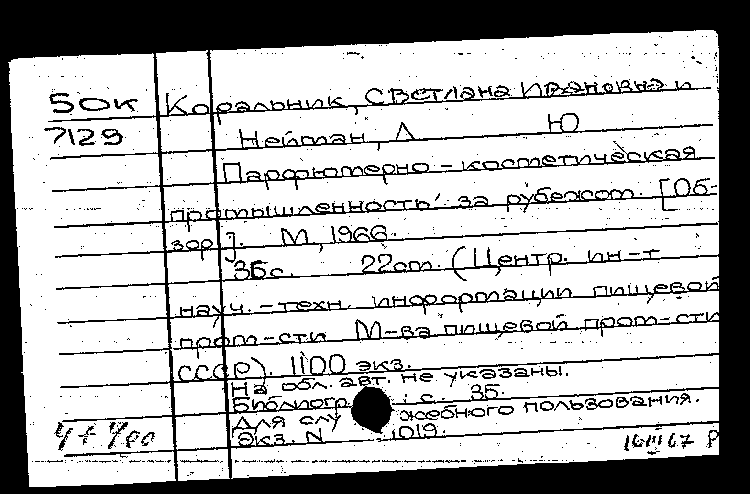 50К Коральник, Светлана Ивановна и
7129 Нейман, Л Ю
Парфюмерно-косметическая
промышленность за рубежом. [Об-
зор]. М, 1966.
36с. 22см. (Центр. ин-т
науч.-техн. информации пищевой
пром-сти М-ва пищевой пром-сти
СССР). 1100 экз.
На обл. авт. не указаны.
Библиогр.: с. 35.
Для слу жебного пользования.
Экз. N 1019.
16 III 67 Р